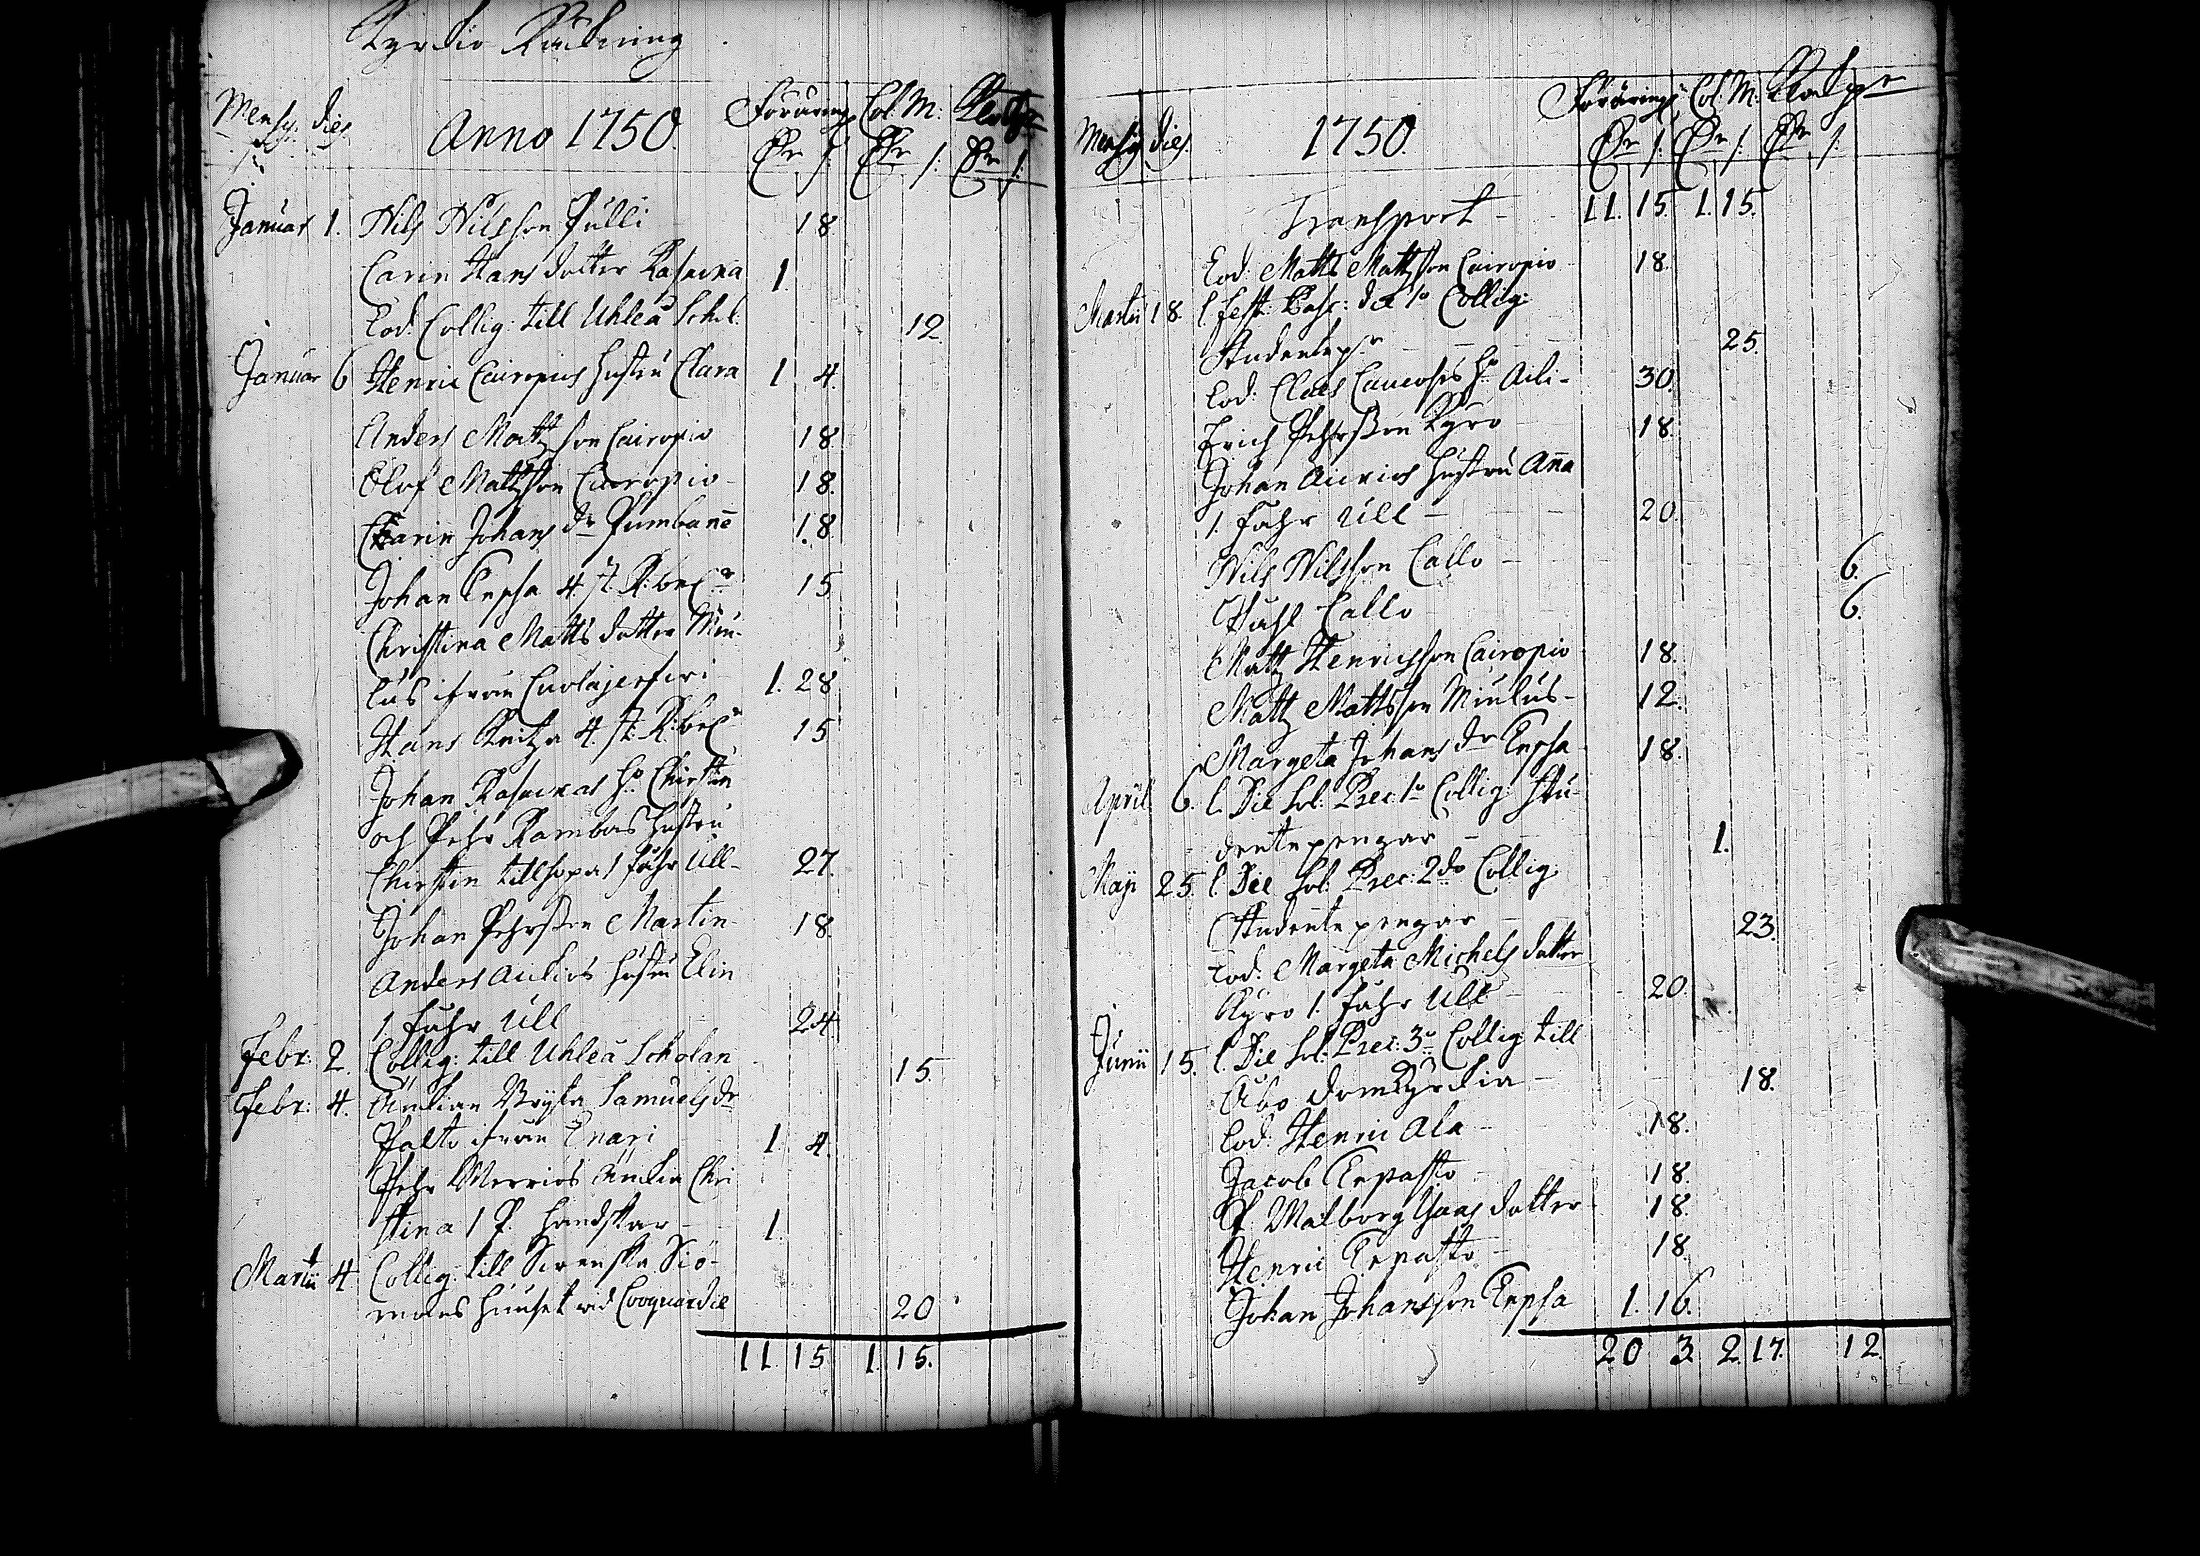 Kyrckio Räckning
Mensy. dies. Anno 1750. Foräring Col. M: Klockpr
Januar 1. Nils Nilsson Pulli 18
Carin Hans dotter Raswina 1.
Eod: Collig: till Uhleå Schol: 12.
Januar 6 Henric Cairopius hustru Clara 1 4.
Anders Mattzson Cairopio 18
Olof Mattzson Cairopio 18.
Carin Johans dr 18
Johan Kepsa 4 15
Christina Matts dotter Miu-
lus ifrån Cuolajerferi 1. 28
Hans 4. 15
Johan ho Chirstin
och Pehr Rambas hustru
Chirstin tillhopa 1 Ull 27.
Johan Pehrsson Martin 18.
Anders Auckios hustru Elin
1 Ull 24
Febr: 2. Collig: till Uhleå Scholan 15.
Febr: 4. Änckian Bryta Samuels dr
Palto ifrån Enari 1. 4.
Pehr Morrios änckia Chri
stina 1 P. handskar 1.
Martii 4 Collig: till Swenska Siö-
mans huuset wid Cooquardie 20
11. 15 1. 15.
Mensy dies. 1750. Foräring Col. M: Klockpr
Transport 11. 15. 1. 15.
Eod: Matts Mattzson Cairopio 18.
Martii 18. l. fest: Pasc: die 1o Collig:
Studentepr 25.
Eod: Claes ho Aili 30.
Erich Pehrsson Kyrö 18.
Johan Auckios hustru Anna
1. Ull 20.
Nils Nilsson Callo 6.
Callo 6.
Mattz Henricsson Cairopio 18.
Mattz Mattsson Miulus 12.
Margeta Johans dr Kepsa 18.
April 6. l. Die Sol: Prec: 1o Collig: Stu-
dentepengar 1.
Maji 25. l. Die Sol: Prec: 2do Collig:
Studente pengar 23.
Eod: Margeta Michels dotter
Kyrö 1. Ull 20.
Junii 15. l. Die Sol: Prec: 3o Collig till
Åbo dom Kyrckia 18.
Eod: Henric Ala 18.
Jacob Kepasto 18.
P. Walborg Claas dotter 18.
Henric Kepasto 18
Johan Johansson Kepsa 1. 16.
20 3. 2. 17. 12.